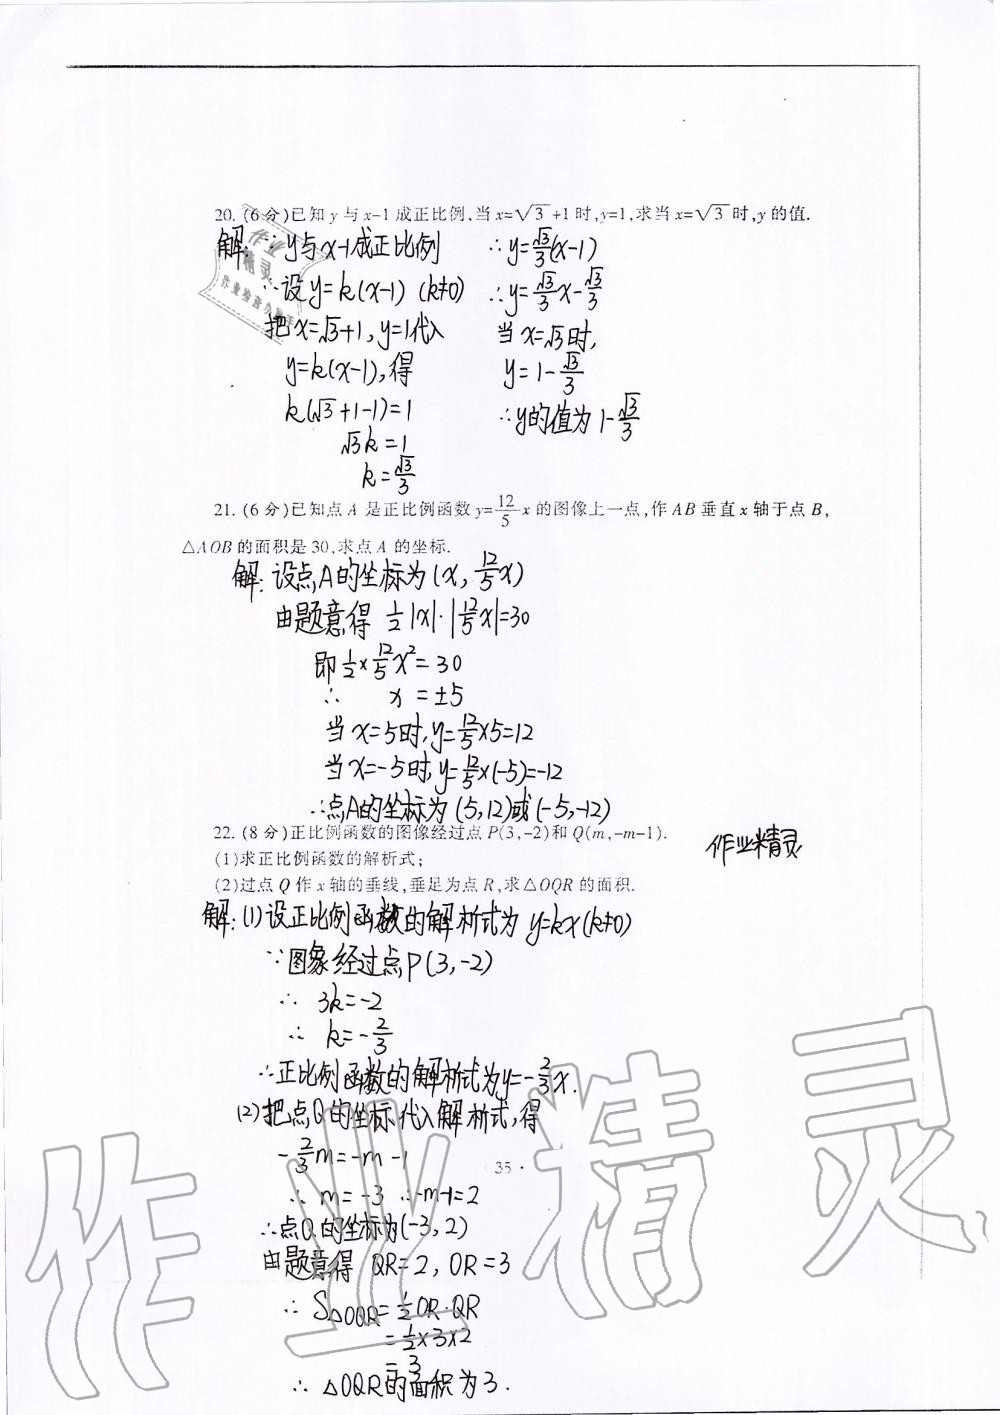 20. (6分)已知 y 与 x-1 成正比例,当 x=√3+1 时,y=1,求当 x=√3 时,y 的值.
解: ∵y与x-1成正比例
∴设y=k(x-1) (k≠0)
把x=√3+1, y=1代入
y=k(x-1),得
k(√3+1-1)=1
√3k=1
k=√3/3
∴y=√3/3(x-1)
∴y=√3/3x-√3/3
当x=√3时,
y=1-√3/3
∴y的值为1-√3/3
作业
精灵
21. (6分)已知点 A 是正比例函数 y=12/5x 的图像上一点,作 AB 垂直 x 轴于点 B,
△AOB 的面积是 30,求点 A 的坐标.
解: 设点A的坐标为(x, 12/5x)
由题意得 1/2|x|·|12/5x|=30
即1/2×12/5x²=30
∴ x=±5
当x=5时,y=12/5×5=12
当x=-5时,y=12/5×(-5)=-12
∴点A的坐标为(5,12)或(-5,-12)
22. (8分)正比例函数的图像经过点 P(3,-2)和 Q(m,-m-1).
作业精灵
(1)求正比例函数的解析式;
(2)过点 Q 作 x 轴的垂线,垂足为点 R,求△OQR 的面积.
解: (1)设正比例函数的解析式为 y=kx(k≠0)
∵图象经过点P(3,-2)
∴ 3k=-2
∴ k=-2/3
∴正比例函数的解析式为y=-2/3x.
(2)把点Q的坐标代入解析式,得
-2/3m=-m-1
35 ·
∴ m=-3 ∴-m-1=2
∴点Q的坐标为(-3,2)
由题意得 QR=2, OR=3
∴ S△OQR=1/2OR·QR
=1/2×3×2
=3
∴ △OQR的面积为3.
作业精灵